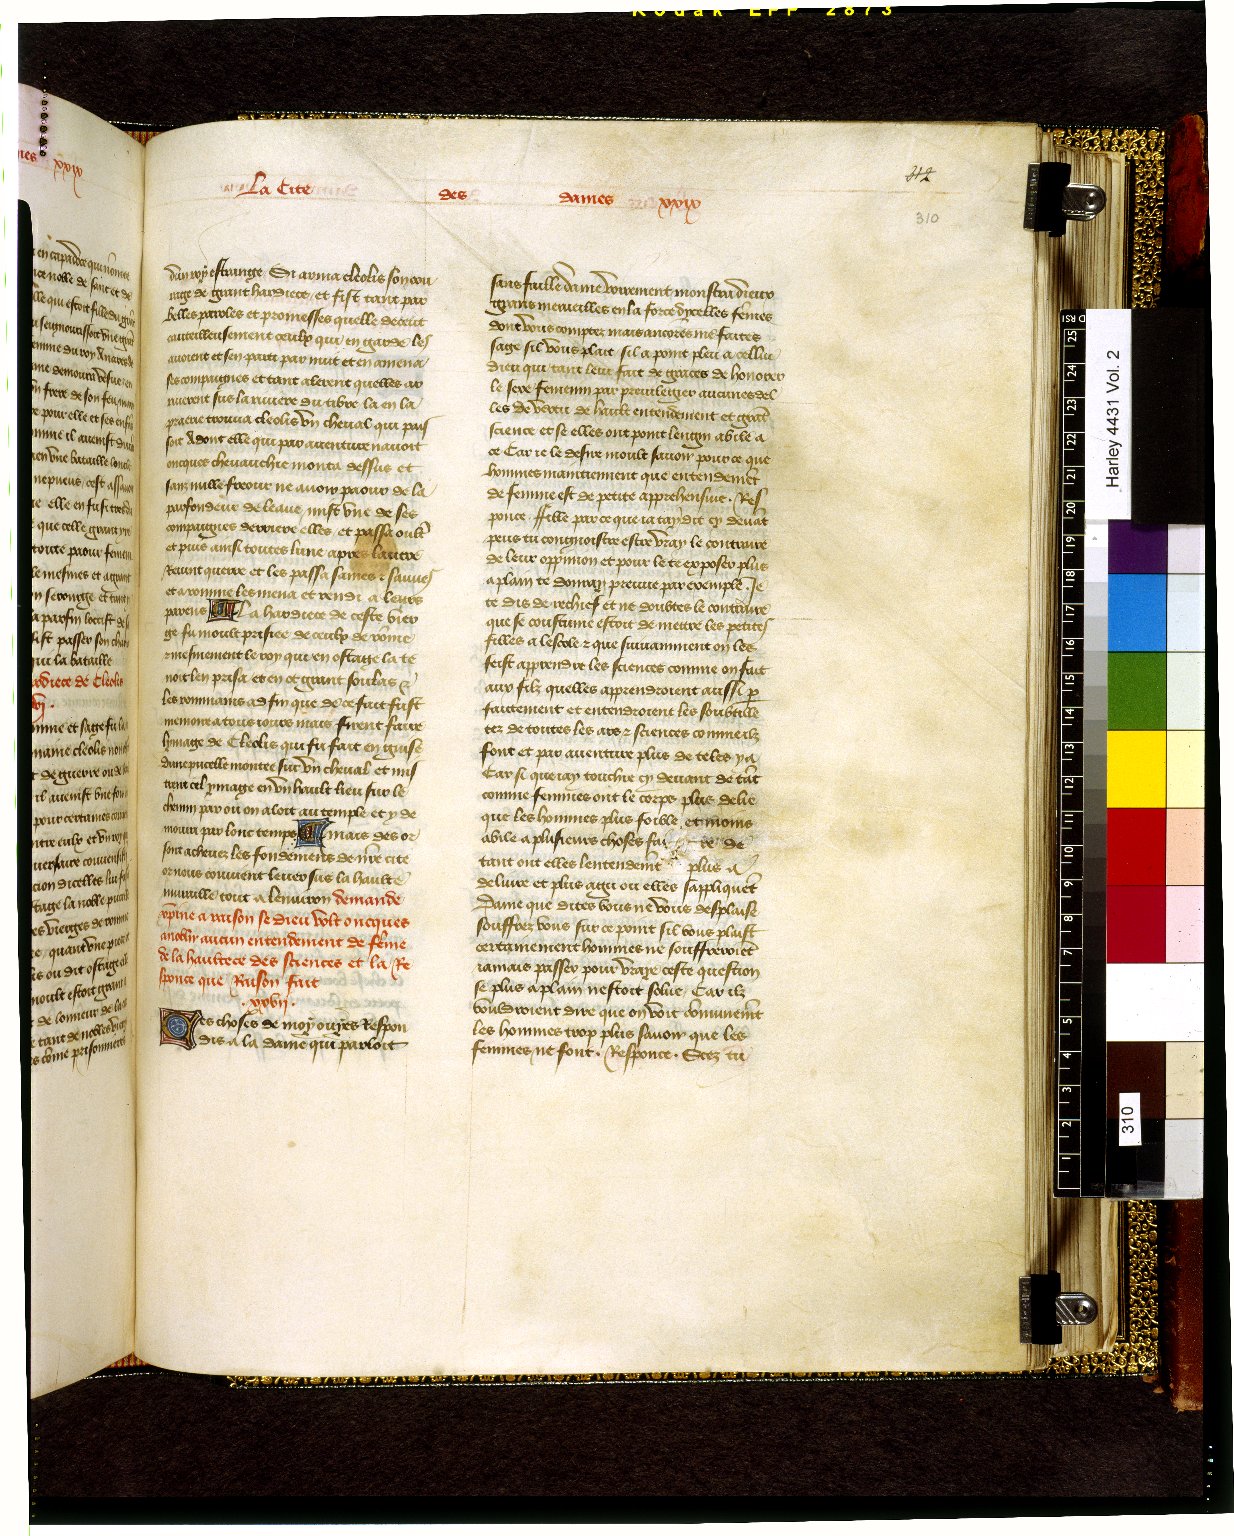 Kodak EPP 2873
La Cite des dames xxix
312
310
dun roy estrange. Si arma cleolis son cou
rage de grant hardiece / et fist tant par
belles paroles et promesses quelle deceut
cauteilleusement ceulx qui en garde les
avoient et sen parti par nuit et en amena
ses compaignes et tant alerent quelles ar
riverent sus la riviere du tibre la en la
praerie trouva cleolis un cheval qui pais
soit Adont elle qui par aventure navoit
oncques chevauchie monta dessus et
sanz nulle freour ne avoir paour de la
parfondeur de leaue mist une de ses
compaignes derriere elles et passa oult
et puis ainsi toutes lune apres lautre
revint querre et les passa saines z sauves
et a romme les mena et rendi a leurs
parens La hardiece de ceste vier
ge fu moult prisiee de ceulx de rome
z mesmement le roy qui en ostage la te
noit len prisa et en ot grant soulas z
les rommains ad fin que de ce fait fust
memoire a tous jours mais firent faire
lymage de Cleolis qui fu fait en guise
dune pucelle montee sur un cheval et mis
trent cel ymage en un hault lieu sur le
chemin par ou on aloit au temple et y de
moura par lonc temps mais des or
sont achevez les fondemens de nre cite
or nous convient lever sus la haulte
muraille tout a lenviron demande
xpine a raison se dieu volt oncques
anoblir aucun entendement de feme
de la haultece des sciences et la Re
sponce que Raison fait
.xxvij.
Ces choses de moy ouyes Respon
dis a la dame qui parloit
sans faille dame voirement monstra dieux
grans merveilles en la force dycelles femes
dont vous comptez mais ancores me faites
sage sil vous plait sil a point pleu a cellui
dieu qui tant leur fait de graces de honorer
le sexe femenin par previlegier aucunes del
les de vertu de hault entendement et grat
science et se elles ont point lengin abile a
ce Car je le desire moult savoir pour ce que
hommes maintiennent que entendemet
de femme est de petite apprehensive. Res
ponce. Fille par ce que ja tay dit cy devat
peus tu congnoistre estre vray le contraire
de leur oppinion et pour le te exposer plus
a plain te donray preuve par exemple. Je
te dis de rechief et ne doubtes le contraire
que se coustume estoit de mettre les petites
filles a lescole z que suivamment on les
feist apprendre les sciences comme on fait
aux filz quelles apprendroient aussi p
faitement et entendroient les soubtille
tez de toutes les ars z sciences comme ilz
font et par aventure plus de teles y a
Car si que jay touchie cy devant de tat
comme femmes ont le corps plus delie
que les hommes plus foible et moins
abile a plusieurs choses fai re de
tant ont elles lentendemet plus a
delivre et plus agu ou elles sappliquet
Dame que dites vous ne vous desplaise
souffrez vous sur ce point sil vous plaist
certainement hommes ne souffreroiet
jamais passer pour vraye ceste question
se plus a plain nestoit solue. Car ilz
vouldroient dire que on voit comunemt
les hommes trop plus savoir que les
femmes ne font. Responce. Scez tu
Harley 4431 Vol. 2
310